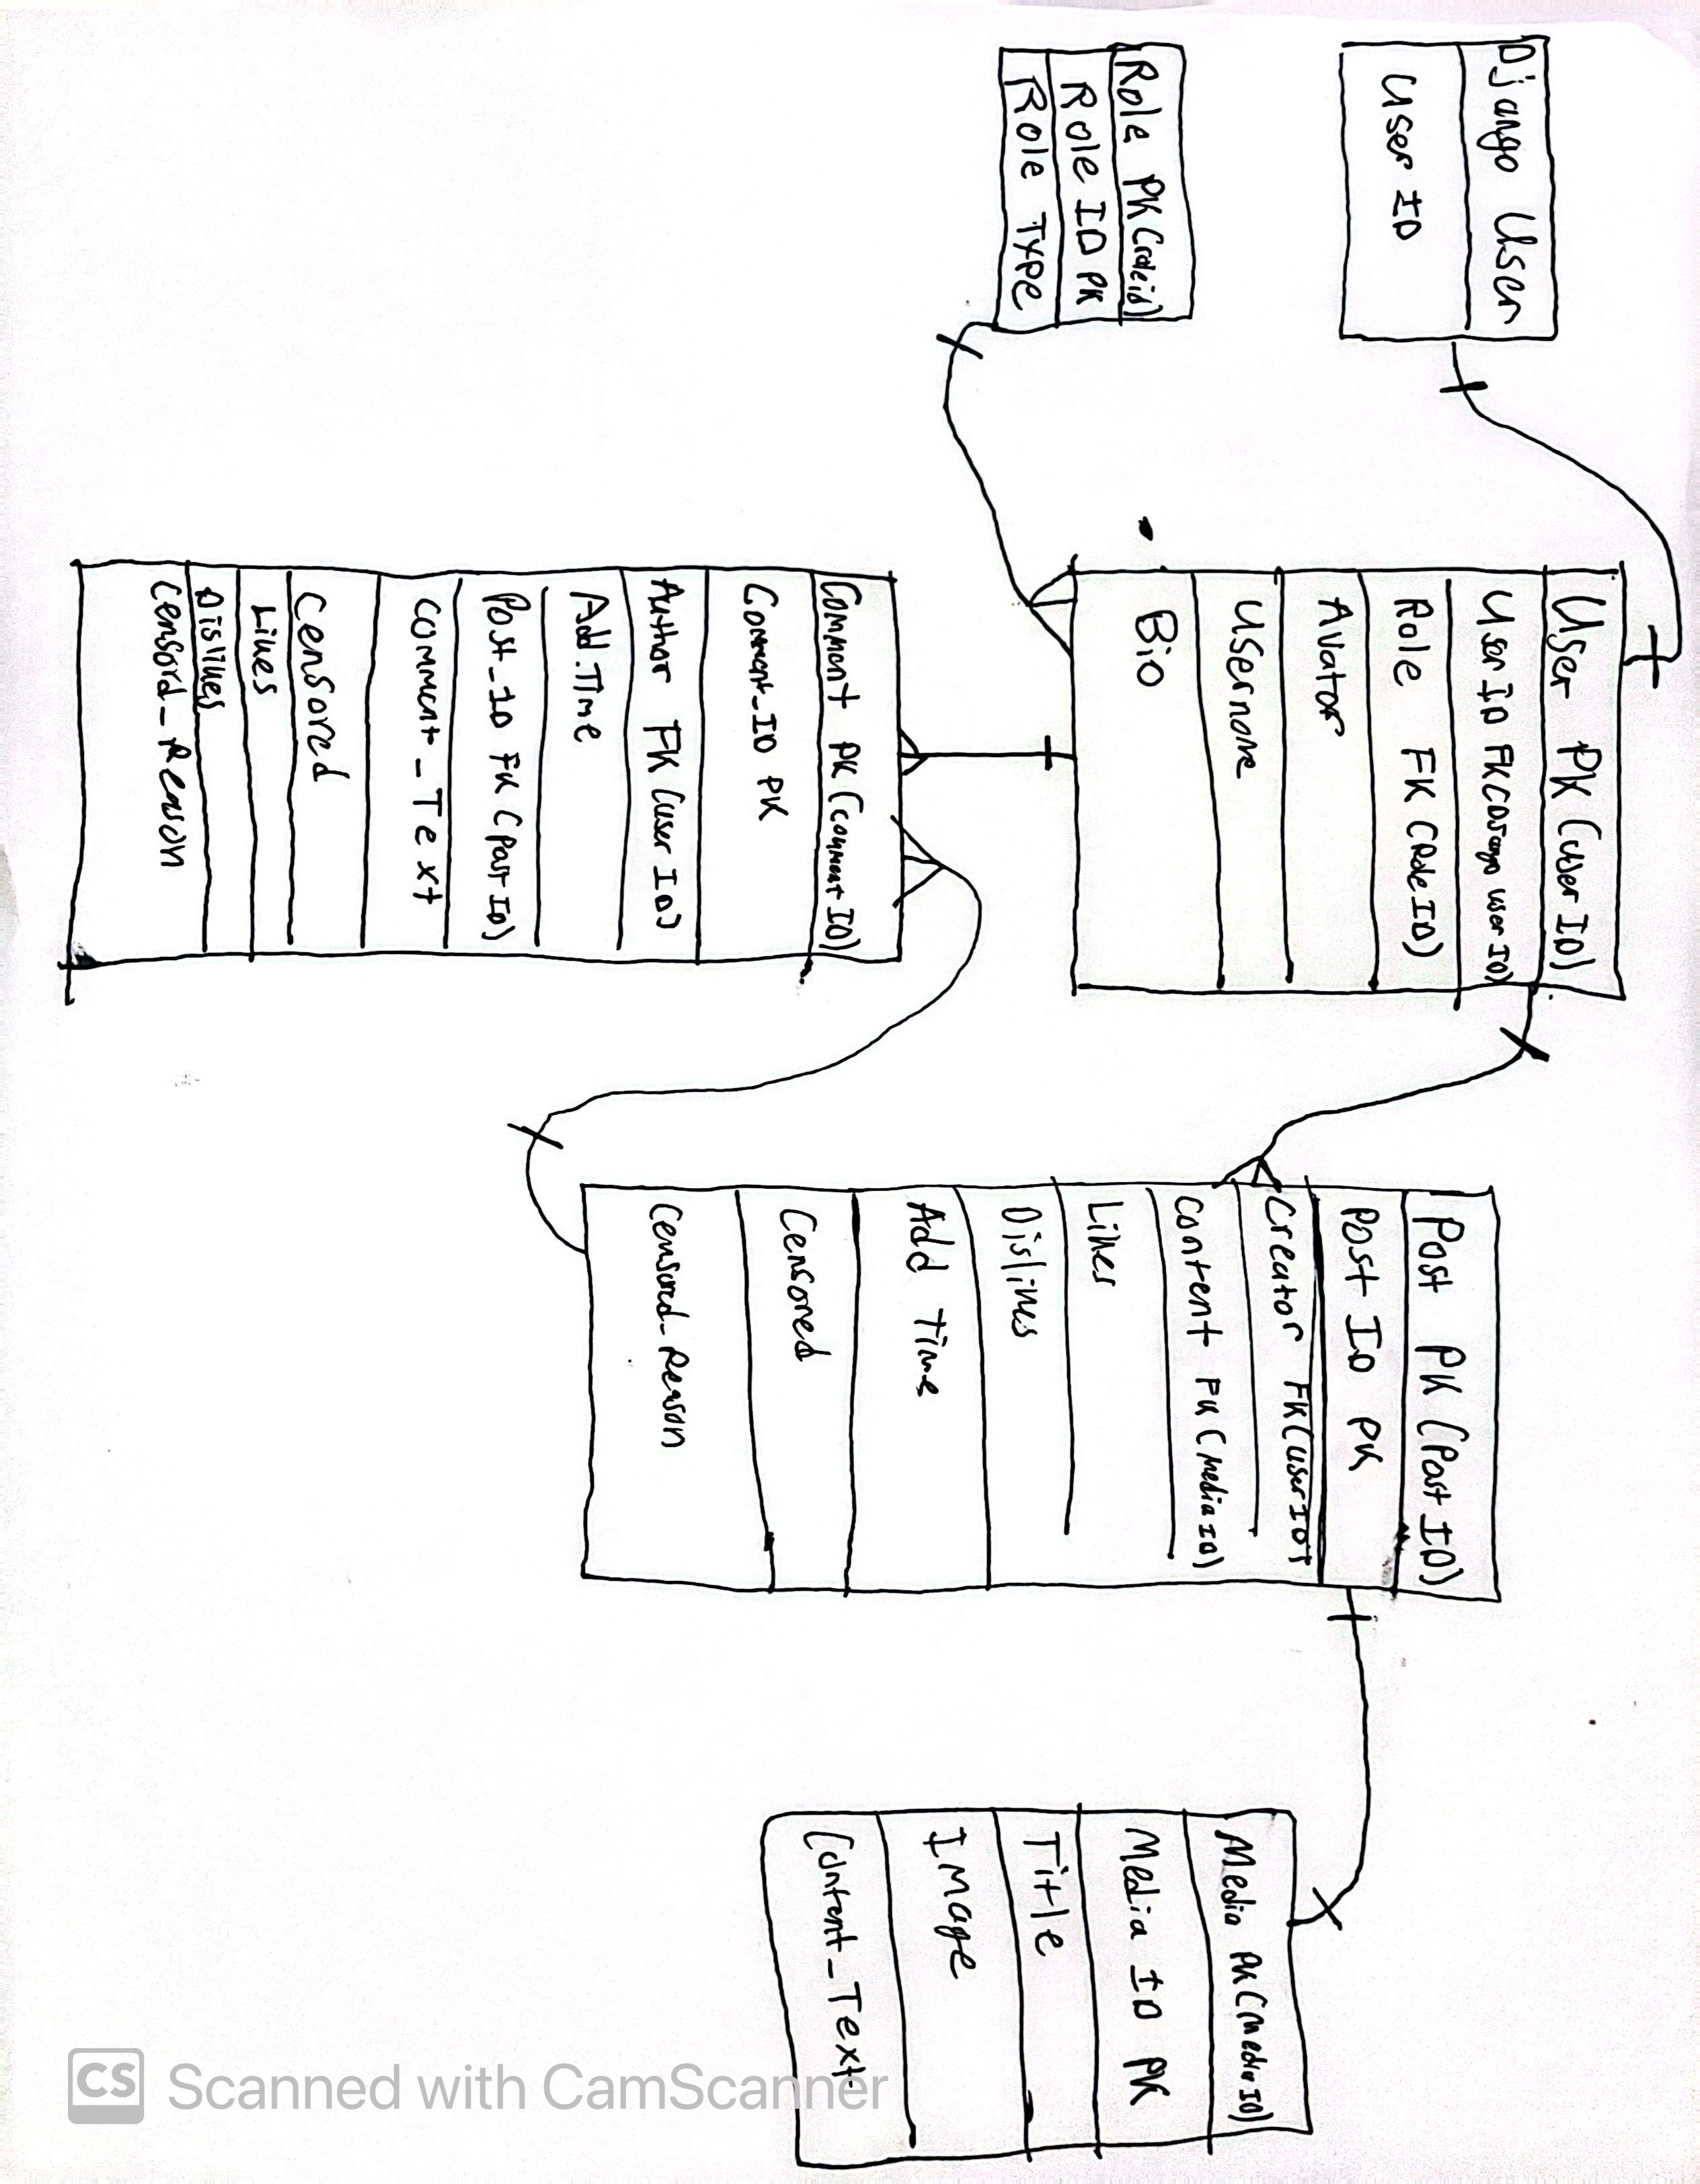 Django User
User ID
Role PK (roleid)
Role ID PK
Role Type
User PK (user ID)
User ID FK (Django user ID)
Role FK (Role ID)
Avator
Username
Bio
Comment PK (comment ID)
Comment_ID PK
Author FK (user ID)
Add.Time
Post_ID FK (Post ID)
Comment_Text
Censored
Likes
Dislikes
Censord_Reason
Post PK (Post ID)
Post ID PK
Creator FK (user ID)
Content FK (Media ID)
Likes
Dislikes
Add Time
Censored
Censored_Reason
Media PK (Media ID)
Media ID PK
Title
Image
Content_Text
CS Scanned with CamScanner